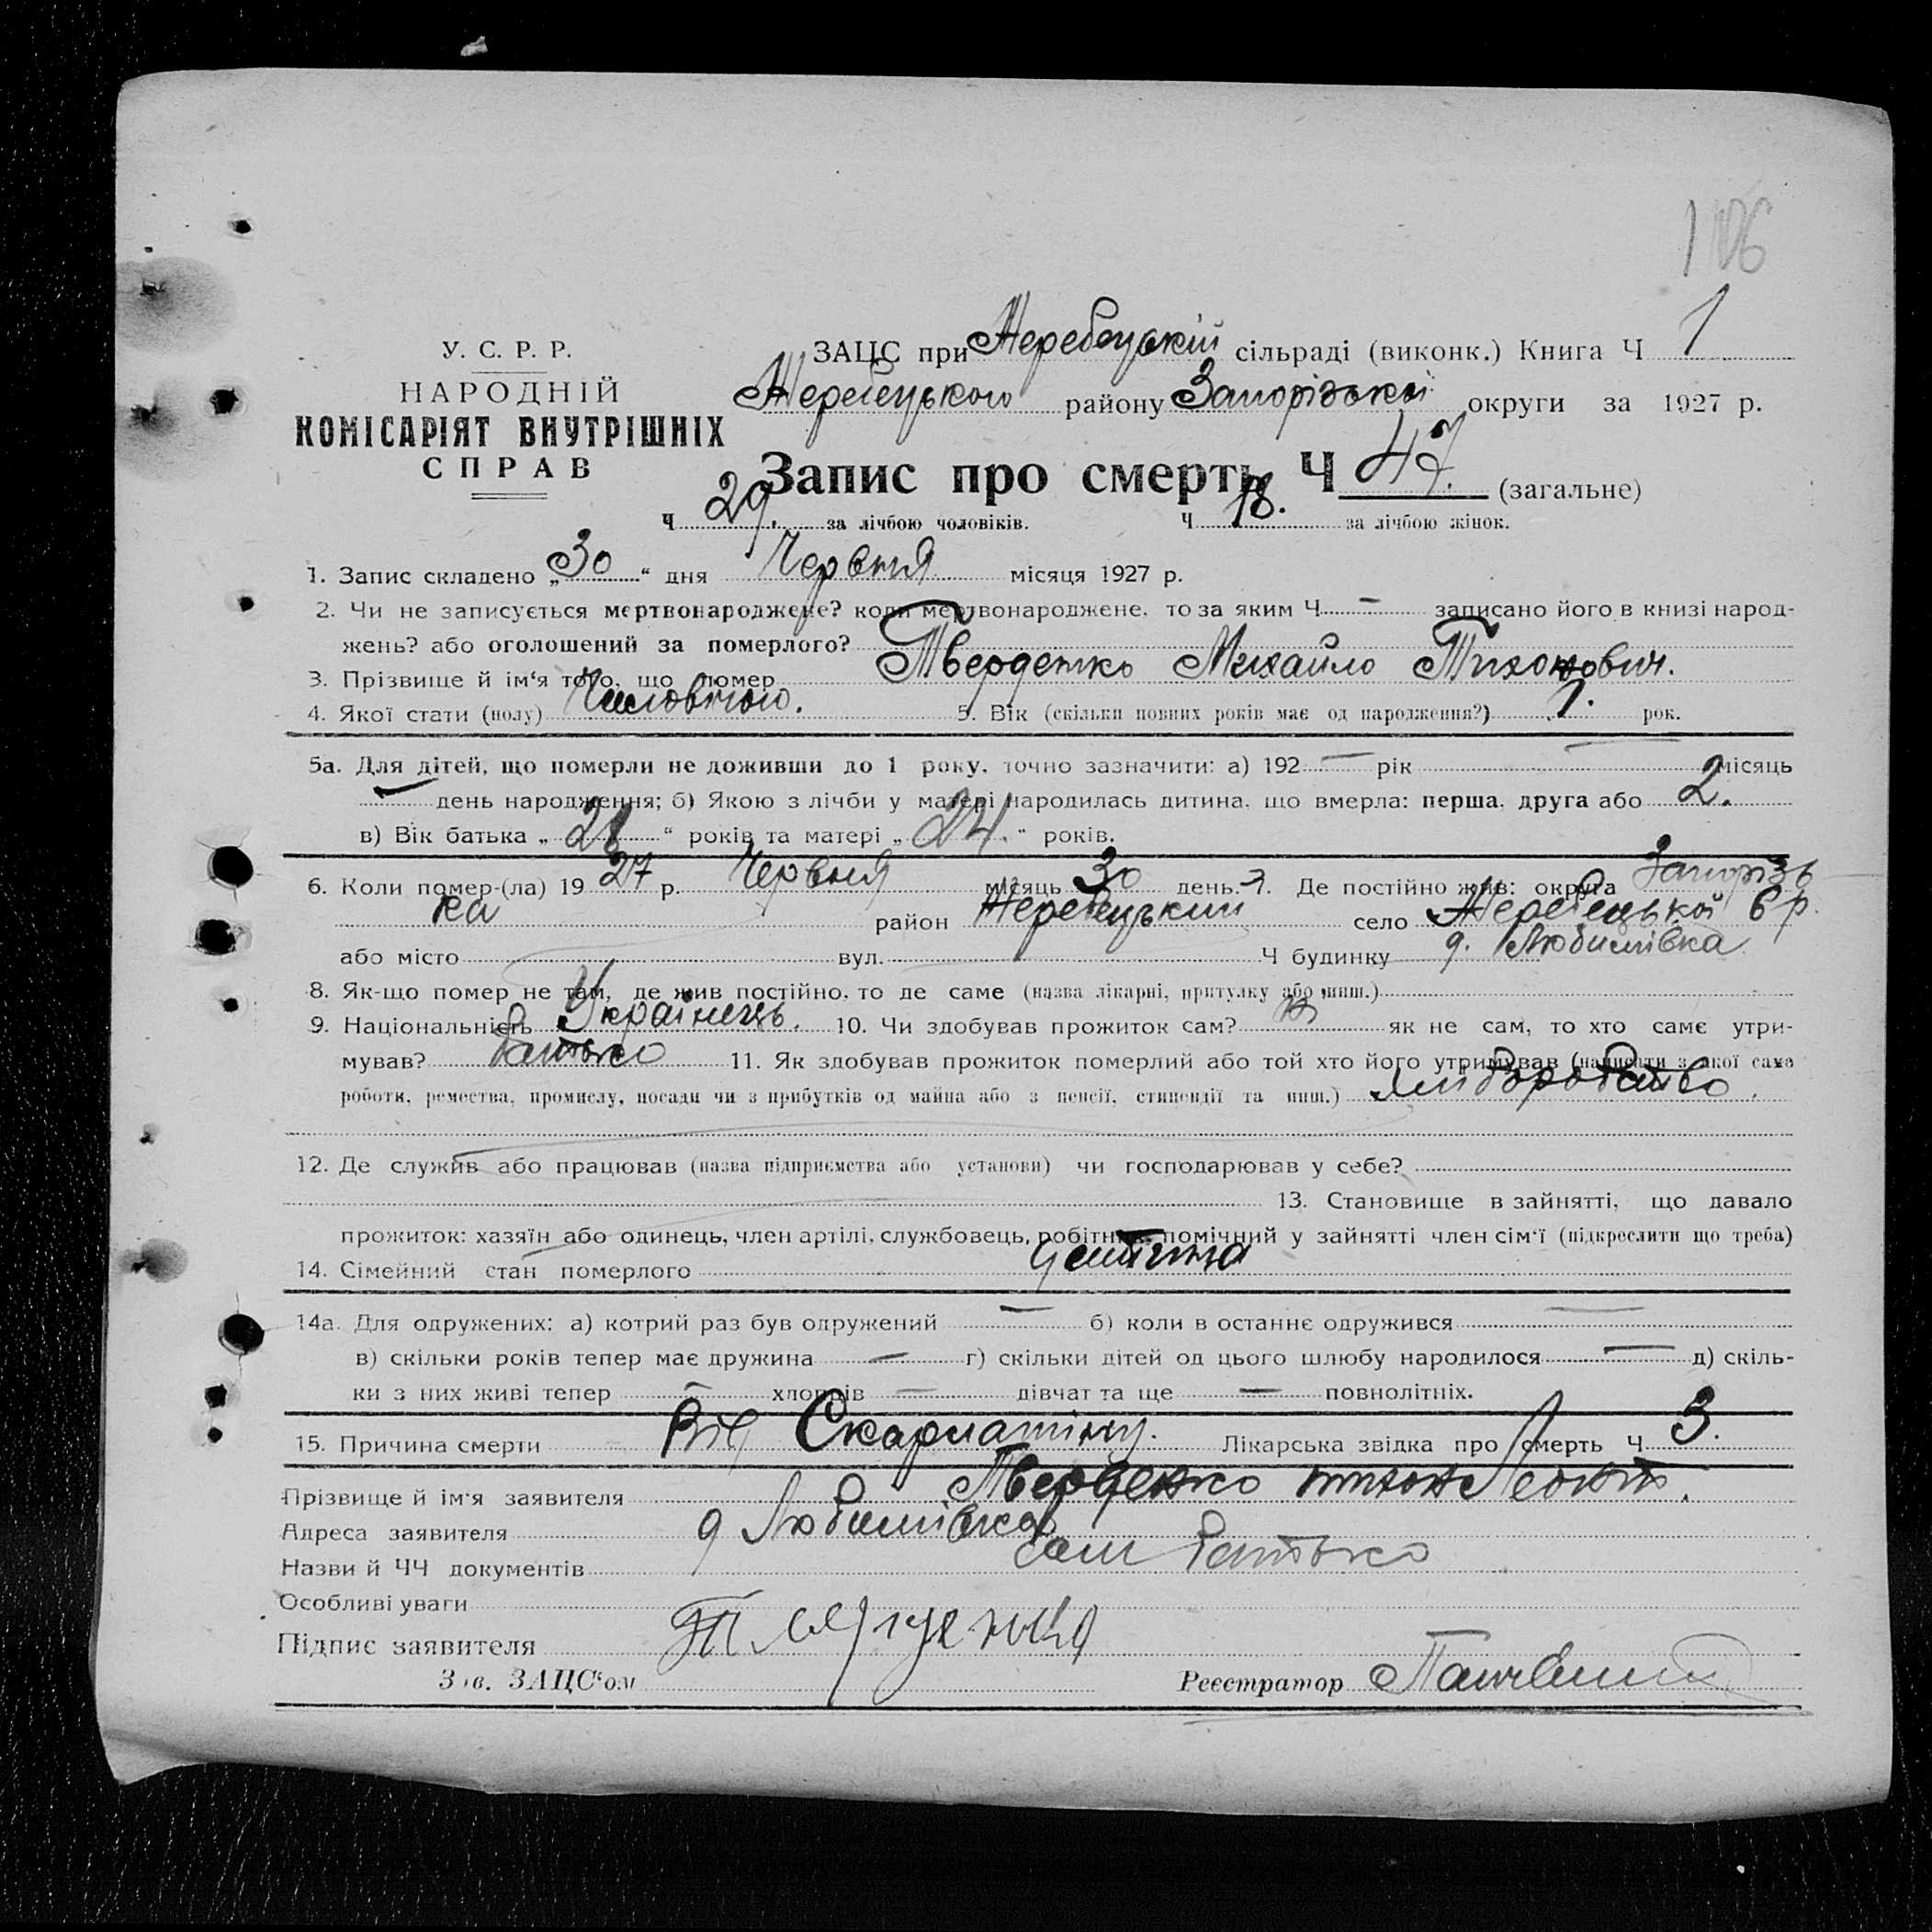 106
У. С. Р. Р.
НАРОДНІЙ
КОМІСАРІЯТ ВНУТРІШНІХ
СПРАВ
ЗАЦС при Жеребецькій сільраді (виконк.) Книга Ч 1
Жеребецького району Запорізької округи за 1927 р.
Запис про смерть Ч 47. (загальне)
Ч 29. за лічбою чоловіків. Ч 18. за лічбою жінок.
1. Запис складено „30“ дня Червня місяця 1927 р.
2. Чи не записується мертвонароджене? коли мертвонароджене, то за яким Ч — записано його в книзі народ-
жень? або оголошений за померлого?
3. Прізвище й ім'я того, що помер Тверденко Михайло Тихонович.
4. Якої стати (полу) Чиловічою. 5. Вік (скільки повних років має од народження?) 1. рок.
5а. Для дітей, що померли не доживши до 1 року, точно зазначити: а) 192 — рік — місяць
— день народження; б) Якою з лічби у матері народилась дитина, що вмерла: перша, друга або 2.
в) Вік батька „28“ років та матері „24.“ років.
6. Коли помер-(ла) 1927 р. Червня місяць 30 день. 7. Де постійно жив: округа Запорізь
ка район Жеребецький село Жеребецької с р.
або місто вул. Ч будинку д. Любимівка
8. Як-що помер не там, де жив постійно, то де саме (назва лікарні, притулку або инш.)
9. Національність Українець. 10. Чи здобував прожиток сам? як не сам, то хто саме утри-
мував? батько 11. Як здобував прожиток померлий або той хто його утримував (написати з якої сама
роботи, ремества, промислу, посади чи з прибутків од майна або з пенсії, стипендії та инш.) хліборобство.
12. Де служив або працював (назва підприємства або установи) чи господарював у себе?
13. Становище в зайнятті, що давало
прожиток: хазяїн або одинець, член артілі, службовець, робітник, помічний у зайнятті член сім'ї (підкреслити що треба)
14. Сімейний стан померлого дитина
14а. Для одружених: а) котрий раз був одружений — б) коли в останнє одружився —
в) скільки років тепер має дружина — г) скільки дітей од цього шлюбу народилося — д) скіль-
ки з них живі тепер — хлопців — дівчат та ще — повнолітніх.
15. Причина смерти Від Скарлатіну. Лікарська звідка про смерть Ч 3.
Прізвище й ім'я заявителя Тверденко тихон Леонт.
Адреса заявителя д Любимівка
Назви й ЧЧ документів сам батько
Особливі уваги
Підпис заявителя
Зав. ЗАЦС'ом Реєстратор